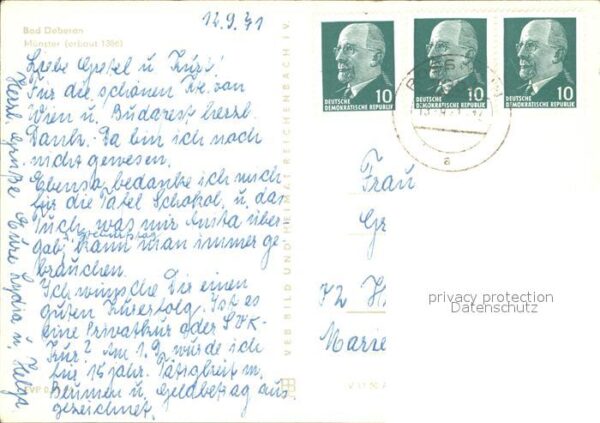 12.9.71
Bad Doberan
Münster (erbaut 1368)
Liebe Gretel u. Kurt!
Für die schönen Kt. von
Wien u. Budapest herzl.
Dank. Da bin ich noch
nicht gewesen.
Ebenso bedanke ich mich
für die Tafel Schokol. u. das
Tuch, was mir Anita über-
gab. Kann man immer ge-
brauchen.
Ich wünsche Dir einen
guten Kurerfolg. Ist es
eine Privatkur oder SVK-
Kur? Am 1.9. würde ich
für 15 jähr. Tätigkeit m.
Blumen u. Geldbetrag aus
gezeichnet.
Herzl. Grüße Eure Lydia u. Helga
VEB BILD UND HEIMAT REICHENBACH I. V.
10
DEUTSCHE
DEMOKRATISCHE REPUBLIK
10
DEUTSCHE
DEMOKRATISCHE REPUBLIK
10
DEUTSCHE
DEMOKRATISCHE REPUBLIK
a
Frau
Gr
72 H
Marie
privacy protection
Datenschutz